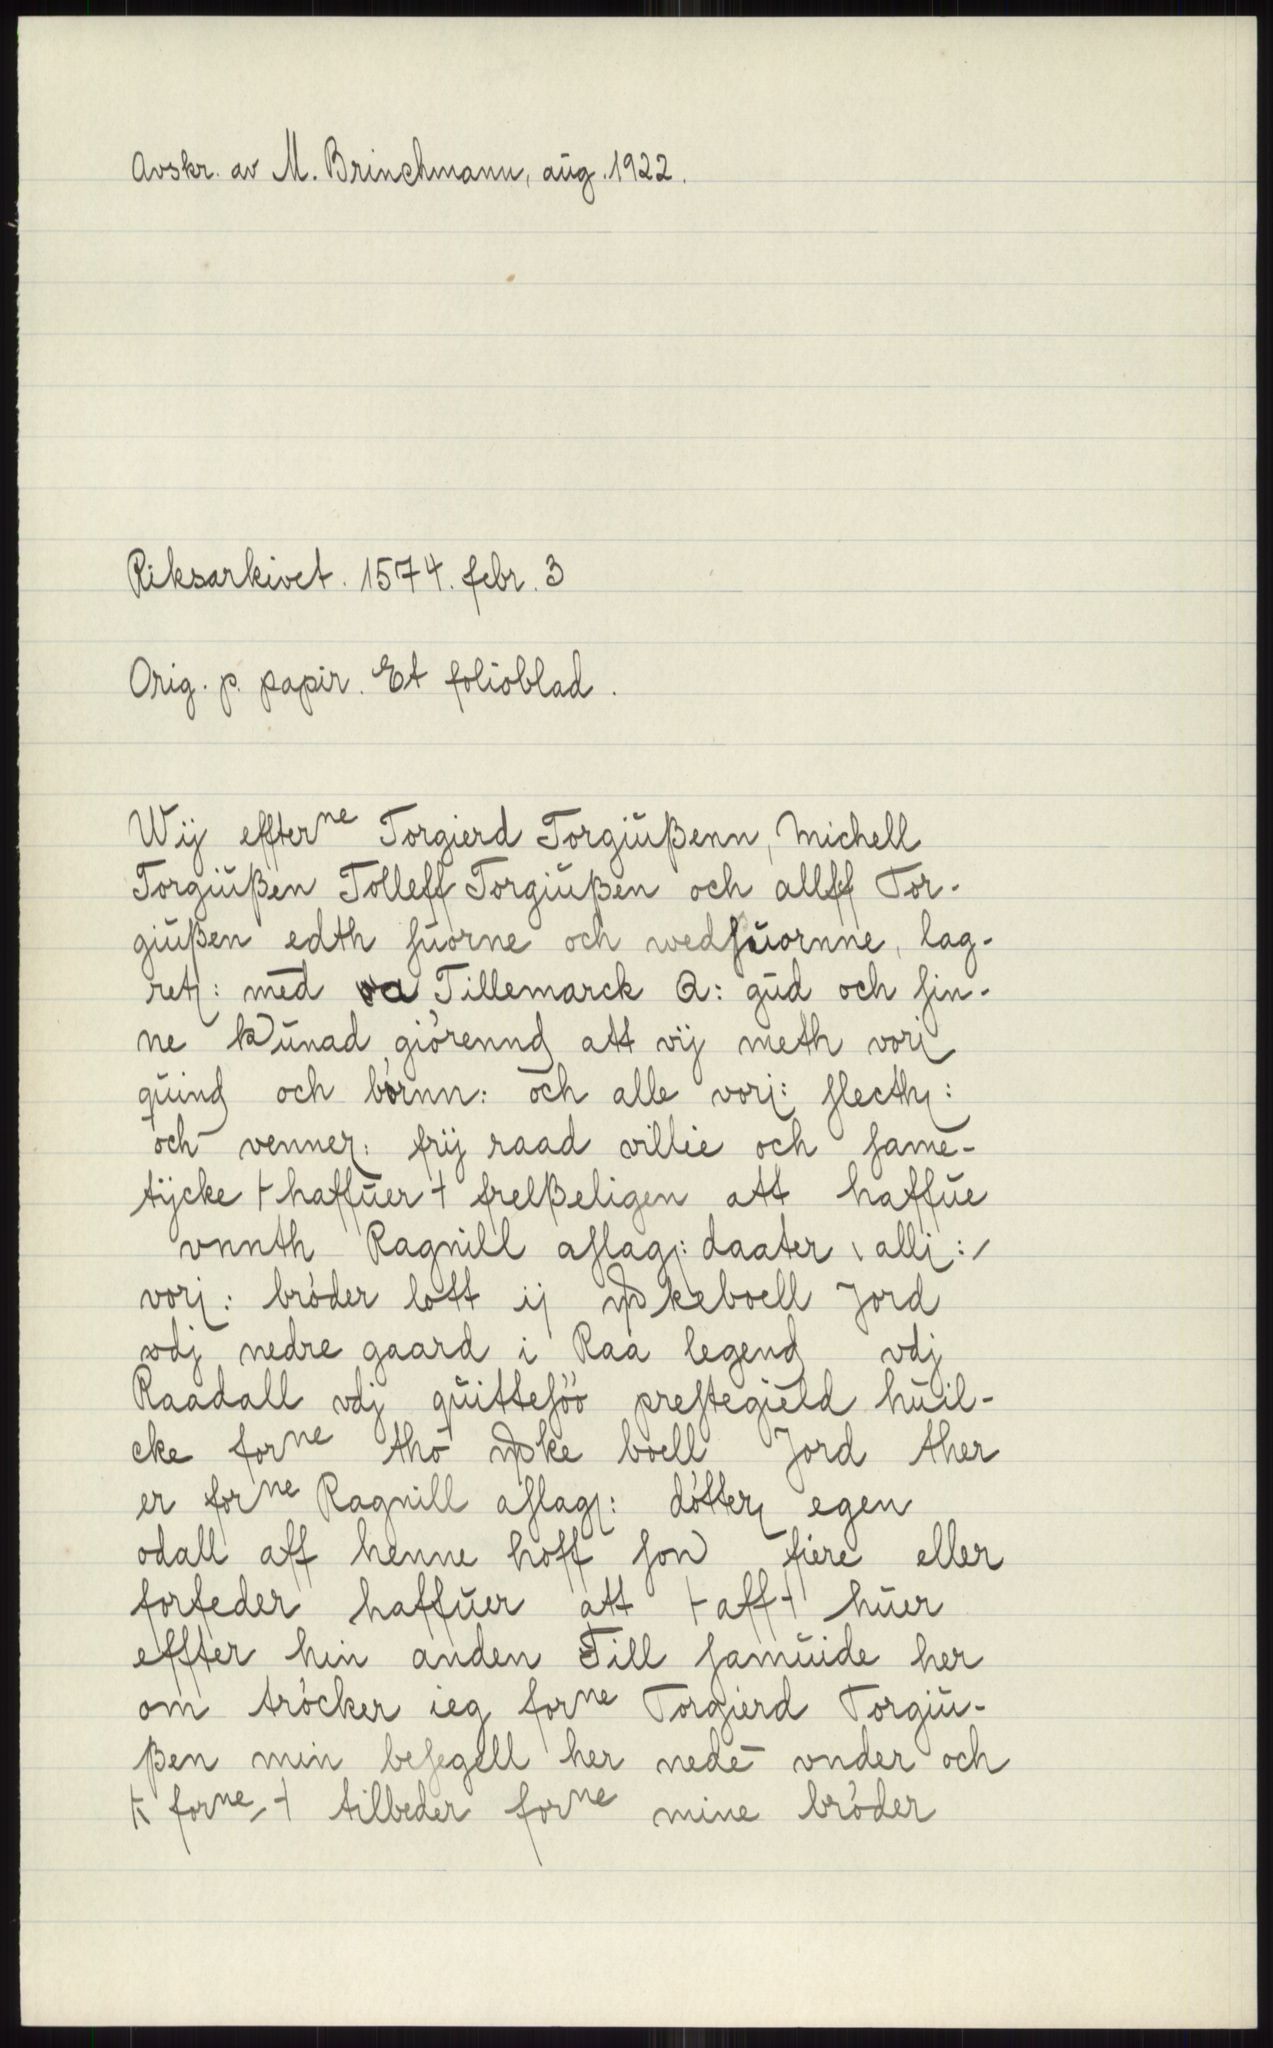 Avskr. av M. Brinchmann, aug. 1922.
Riksarkivet. 1574. febr. 3
Orig. p. papir. Et folioblad.
Wij effterne Torgierd Torgiußenn, Michell
Torgiußen Tolleff Torgiußen och allff Tor-
giußen edth suorne och wedsuornne, lag-
retj: med Tillemarck G: gud och sin-
ne kunad giörennd att vij meth vorj
quind och börnn: och alle vorj: slecthj:
och vennerj: frij raad villie och same-
tÿcke + haffuer + frelßeligen att haffue
vnnth Ragnill aslagj: daater allj:
vorj: bröder lott ij keboell Jord
vdj nedre gaard i Raa legend vdj
Raadall vdj quittesöö prestegield huil-
cke forne tho ke boell Jord ther
er forne Ragnill aslagj: dötterj egen
odall aff henne hoff son fiere eller
forfeder haffuer att + aff + huer
effter hin anden Till samuide her
om tröcker ieg forne Torgierd Torgiu-
ßen min besegell her nede vnder och
+ forne + tilbeder forne mine bröder